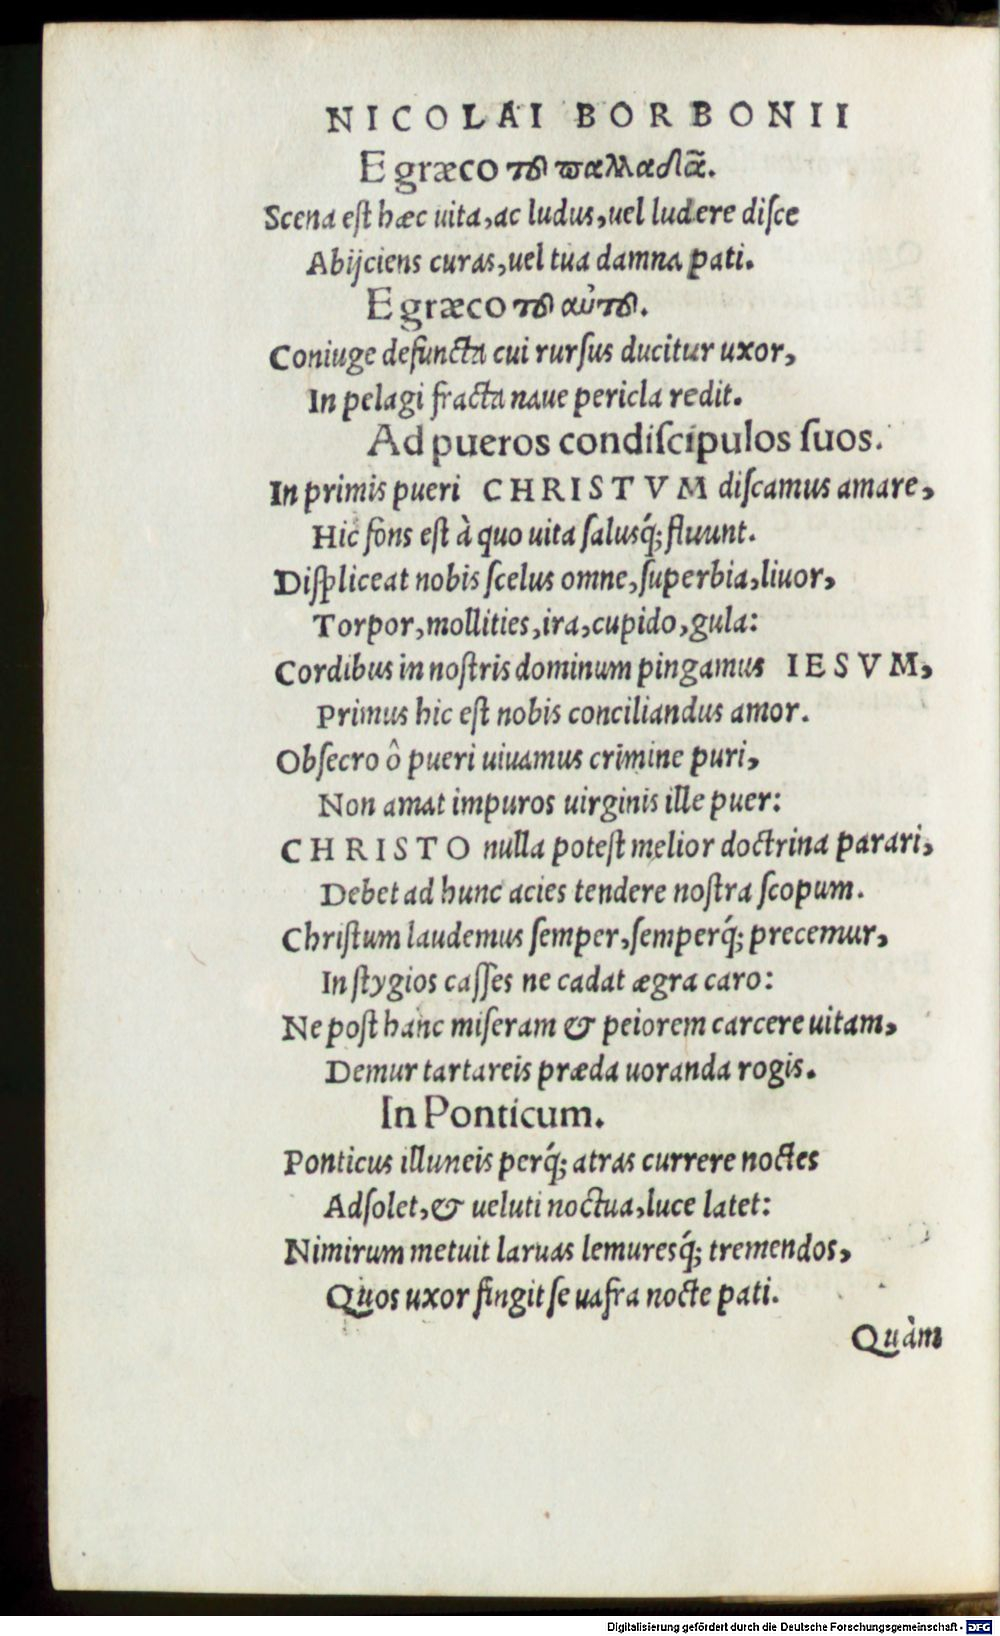 NICOLAI BORBONII
E græco τȣ παλλαδᾶ.
Scena eſt hæc uita, ac ludus, uel ludere diſce
Abijciens curas, uel tua damna pati.
E græco τȣ αὐτȣ.
Coniuge defuncta cui rurſus ducitur uxor,
In pelagi fracta naue pericla redit.
Ad pueros condiſcipulos ſuos.
In primis pueri CHRISTVM diſcamus amare,
Hic fons eſt à quo uita ſalusq́; fluunt.
Diſpliceat nobis ſcelus omne, ſuperbia, liuor,
Torpor, mollities, ira, cupido, gula:
Cordibus in noſtris dominum pingamus IESVM,
Primus hic eſt nobis conciliandus amor.
Obſecro ô pueri uiuamus crimine puri,
Non amat impuros uirginis ille puer:
CHRISTO nulla poteſt melior doctrina parari,
Debet ad hunc acies tendere noſtra ſcopum.
Chriſtum laudemus ſemper, ſemperq́; precemur,
In ſtygios caſſes ne cadat ægra caro:
Ne poſt hanc miſeram & peiorem carcere uitam,
Demur tartareis præda uoranda rogis.
In Ponticum.
Ponticus illuneis perq́; atras currere noctes
Adſolet, & ueluti noctua, luce latet:
Nimirum metuit laruas lemuresq́; tremendos,
Quos uxor fingit ſe uafra nocte pati.
Quàm
Digitalisierung gefördert durch die Deutsche Forschungsgemeinschaft - DFG